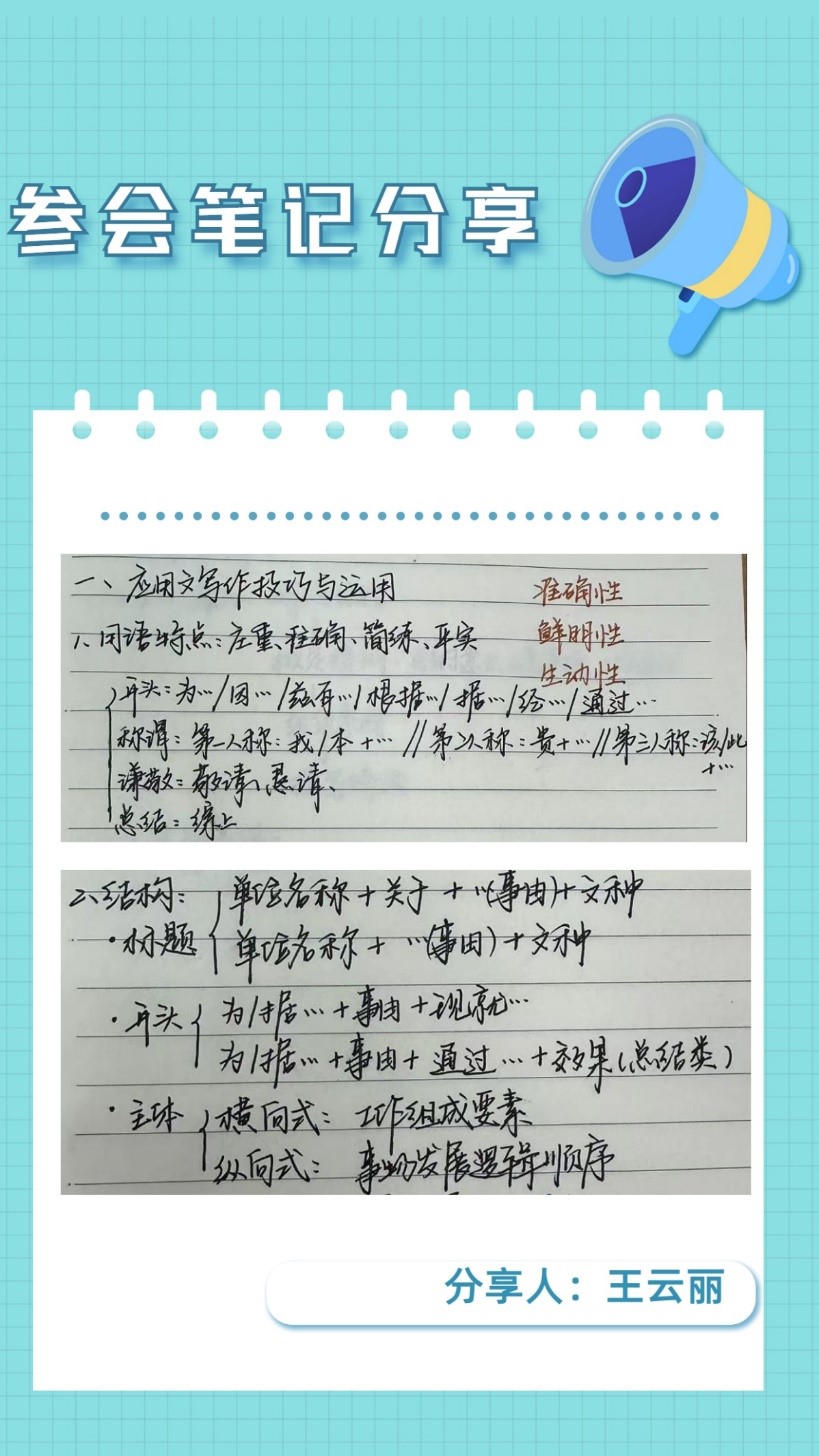 参会笔记分享
一、应用文写作技巧与运用
准确性
1、词语特点：庄重、准确、简练、平实
鲜明性
生动性
开头：为…/因…/兹有…/根据…/据…/经…/通过…
称谓：第一人称：我/本+…//第二人称：贵+…//第三人称：该/此+…
谦敬：敬请、恳请、
总结：综上
二、结构：
·标题
单位名称+关于+…(事由)+文种
单位名称+…(事由)+文种
·开头
为/据…+事由+现就…
为/据…+事由+通过…+效果(总结类)
·主体
横向式：工作组成要素
纵向式：事物发展逻辑顺序
分享人：王云丽